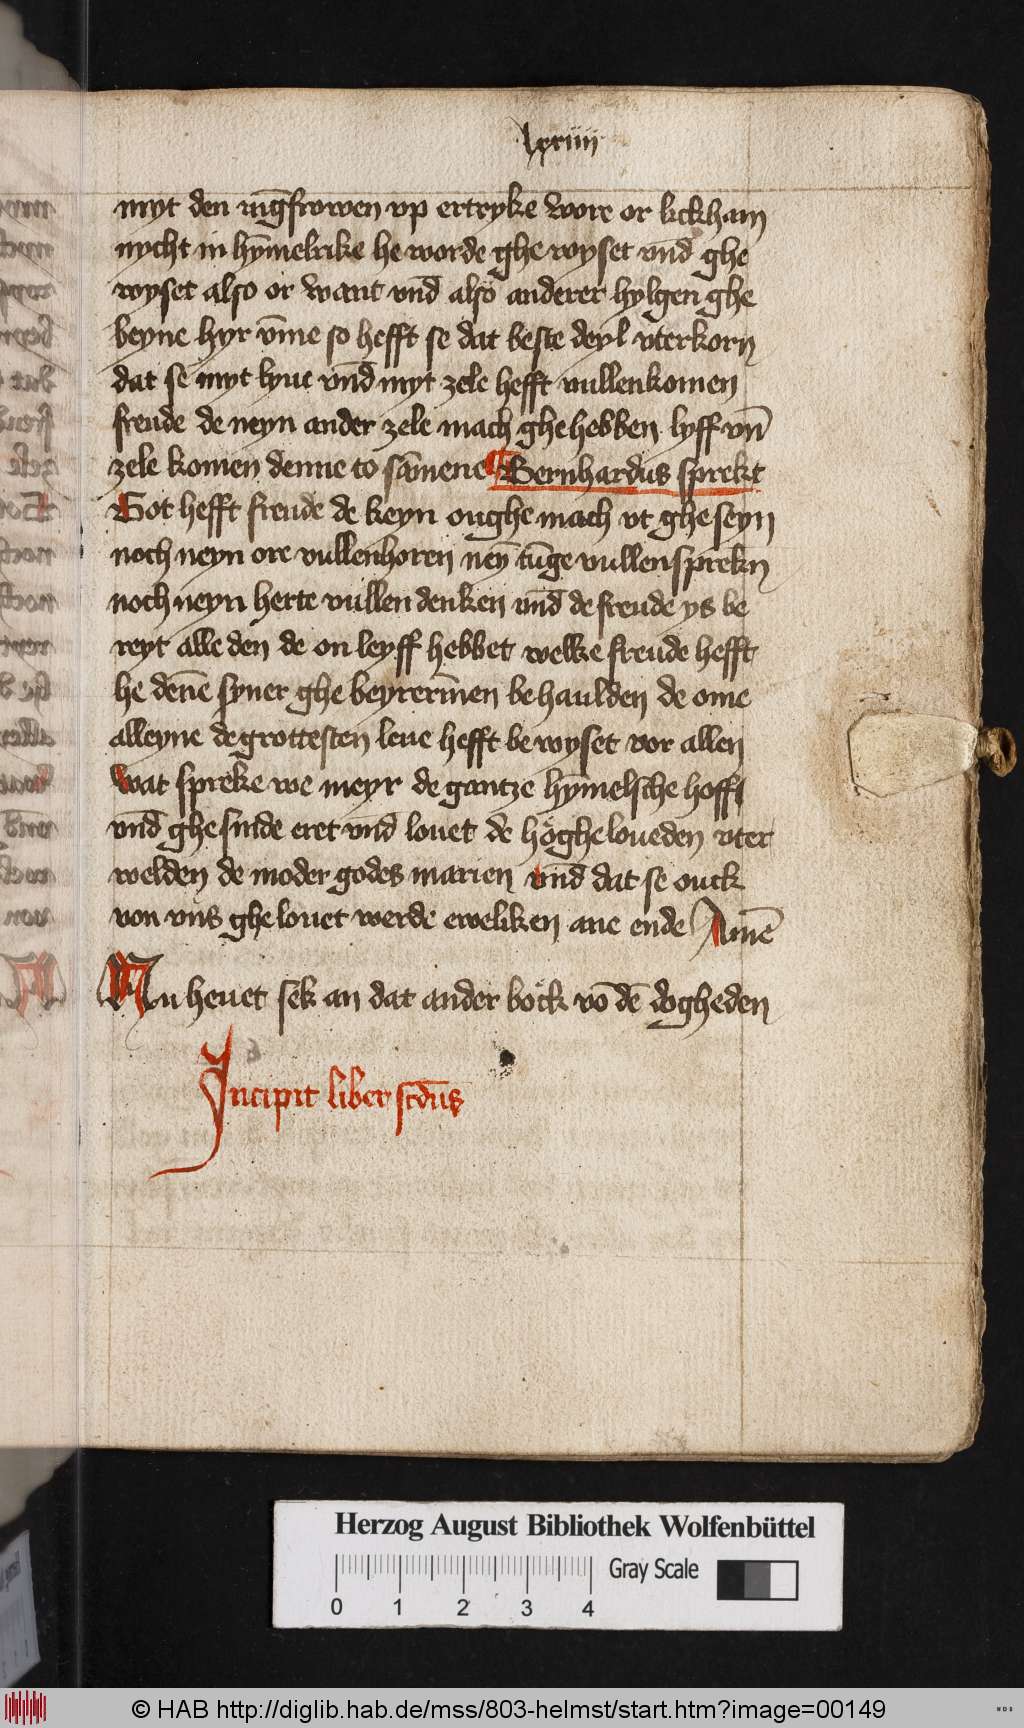 lxxiiii
myt den iu̅gfrowen vp ertryke wore or lickham
nycht in hy̅melrike he worde ghe wyset vn̅d ghe
wyset also or want vn̅d also anderer hylgen ghe
beyne hyr v̅me so hefft se dat beste deyl vterkorn
dat se myt lyue vn̅d myt zele hefft vullenkomen
freude de neyn ander zele mach ghehebben lyff vn̅
zele komen denne to sa̅mene Bernhardus sprekt
Got hefft freude de keyn oughe mach vt ghe seyn
noch neyn ore vullenhoren ney̅ tu̅ge vullensprekn
noch neyn herte vullen denken vn̅d de freude ys be
reyt alle den de on leyff hebbet welke freude hefft
he den̅e syner ghe beyreri̅nen be haulden de ome
alleyne de grottesten leue hefft be wyset vor allen
wat spreke we meyr de gantze hy̅melsche hoff
vn̅d ghe sinde eret vn̅d louet de hoͤghe loueden vter
welden de moder godes marien vn̅d dat se ouck
von vns ghe louet werde eweliken ane ende Ame̅
Nu heuet sek an dat ander boͤck vo̅ de̅ dogheden
Incipit liber scd̅us
Herzog August Bibliothek Wolfenbüttel
Gray Scale
0 1 2 3 4
© HAB http://diglib.hab.de/mss/803-helmst/start.htm?image=00149